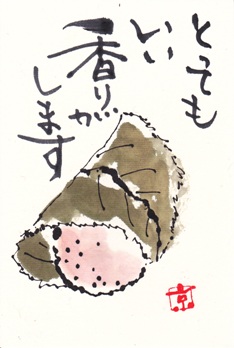 とっても
いい
香りが
します
京